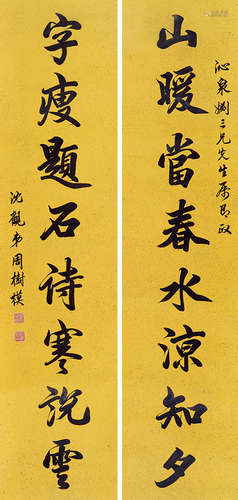 沁泉姻三兄先生屬即政
山暖當春水涼知夕
字瘦題石詩寒說雲
沈觀弟周樹模